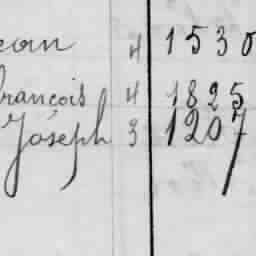 ean 4 1530
françois 4 1825
Joséph 3 1207